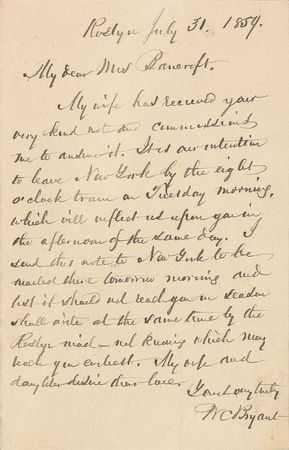 Roslyn July 31. 1859.
My dear Mrs Bancroft.
My wife has received your
very kind note and commissions
me to answer it. It is our intention
to leave New York by the eight
o'clock train on Tuesday morning,
which will inflict us upon you in
the afternoon of the same day. I
send this note to New York to be
mailed there tomorrow morning and
lest it should not reach you in season
shall write at the same time by the
Roslyn mail— not knowing which may
reach you earliest. My wife and
daughter desire their love.
Yours very truly
W C Bryant